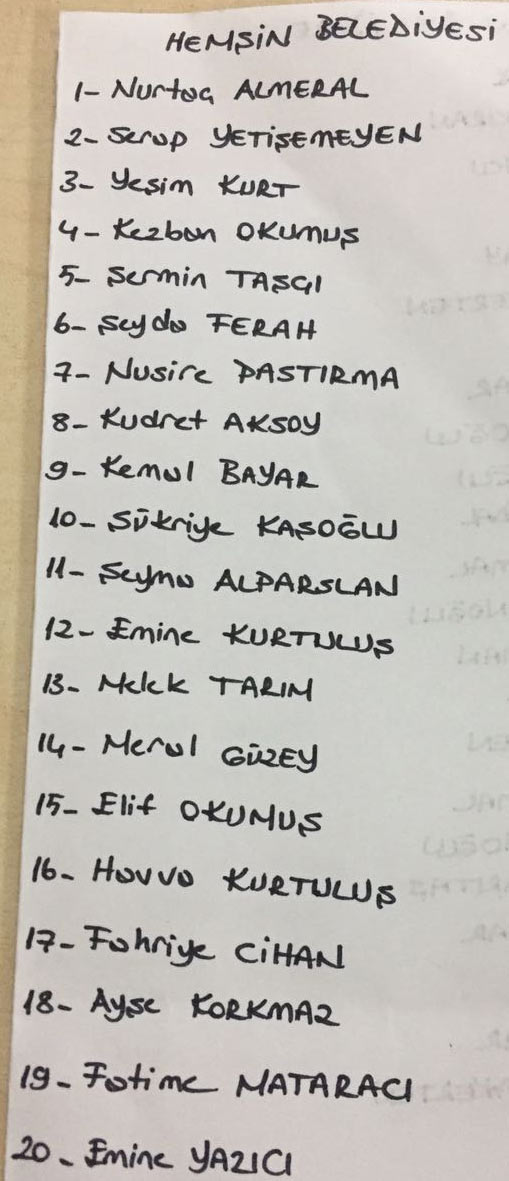 HEMŞİN BELEDİYESİ
1- Nurtaç ALMERAL
2- Serap YETİŞEMEYEN
3- Yeşim KURT
4- Kezban OKUMUŞ
5- Şermin TAŞÇI
6- Şeyda FERAH
7- Nusire PASTIRMA
8- Kudret AKSOY
9- Kemal BAYAR
10- Şükriye KAŞOĞLU
11- Şeyma ALPARSLAN
12- Emine KURTULUŞ
13- Melek TARIM
14- Meral GÜZEY
15- Elif OKUMUŞ
16- Havva KURTULUŞ
17- Fahriye CİHAN
18- Ayşe KORKMAZ
19- Fatime MATARACI
20- Emine YAZICI